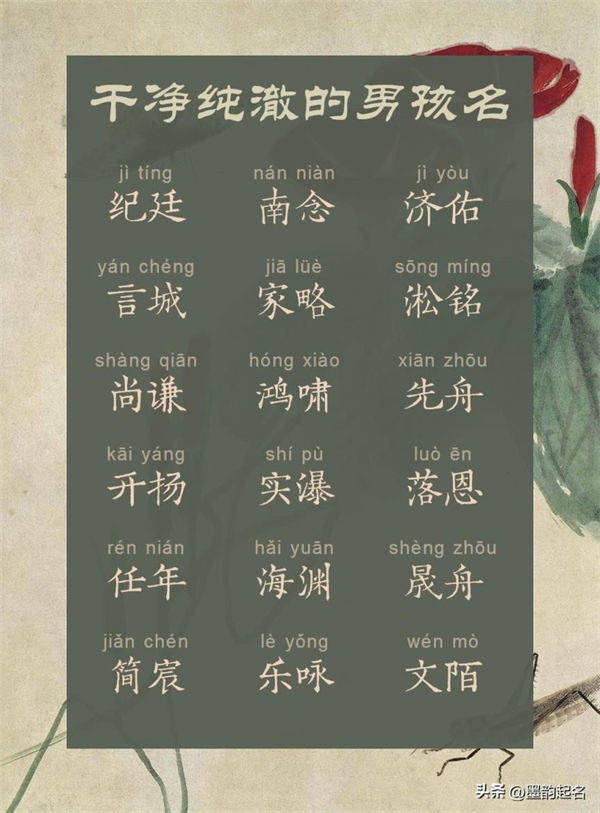 干净纯澈的男孩名
jì tíng nán niàn jì yòu
纪廷 南念 济佑
yán chéng jiā lüè sōng míng
言城 家略 淞铭
shàng qiān hóng xiào xiān zhōu
尚谦 鸿啸 先舟
kāi yáng shí pù luò ēn
开扬 实瀑 落恩
rén nián hǎi yuān shèng zhōu
任年 海渊 晟舟
jiǎn chén lè yǒng wén mò
简宸 乐咏 文陌
头条 @墨韵起名